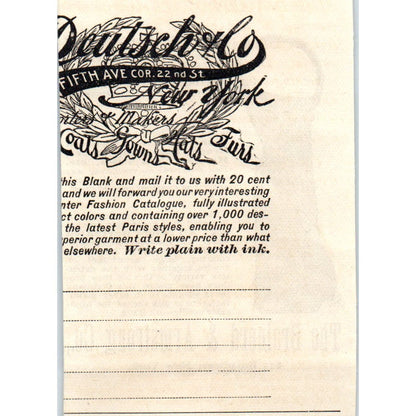 Deutsch & Co
FIFTH AVE COR. 22nd St.
New York
Makers
Coats, Gowns, Hats, Furs.
this Blank and mail it to us with 20 cent
and we will forward you our very interesting
nter Fashion Catalogue, fully illustrated
ct colors and containing over 1,000 des-
the latest Paris styles, enabling you to
perior garment at a lower price than what
elsewhere. Write plain with ink.